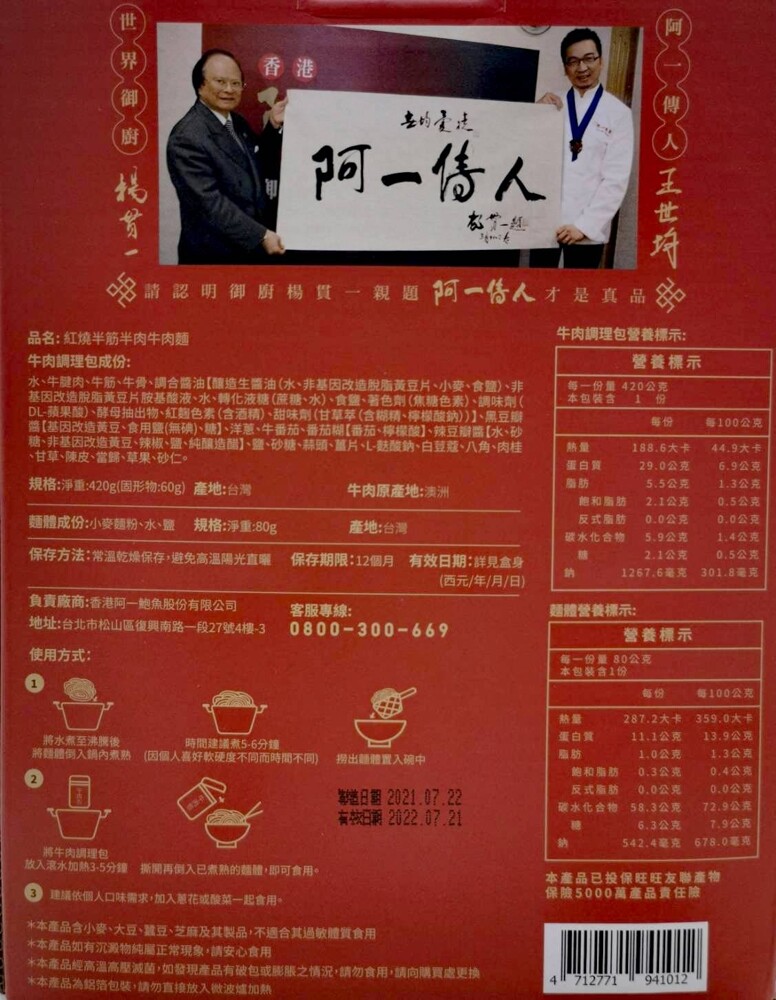 世界御廚
楊貫一
阿一傳人
王世均
香港
阿一傳人
請認明御廚楊貫一親題 阿一傳人 才是真品
品名:紅燒半筋半肉牛肉麵
牛肉調理包成份:
水、牛腱肉、牛筋、牛骨、調合醬油【釀造生醬油(水、非基因改造脫脂黃豆片、小麥、食鹽)、非
基因改造脫脂黃豆片胺基酸液、水、轉化液糖(蔗糖、水)、食鹽、著色劑(焦糖色素)、調味劑(
DL-蘋果酸)、酵母抽出物、紅麴色素(含酒精)、甜味劑(甘草萃(含糊精、檸檬酸鈉))】、黑豆瓣
醬【基因改造黃豆、食用鹽(無碘)、糖】、洋蔥、牛番茄、番茄糊【番茄、檸檬酸】、辣豆瓣醬【水、砂
糖、非基因改造黃豆、辣椒、鹽、純釀造醋】、鹽、砂糖、蒜頭、薑片、L-麩酸鈉、白豆蔻、八角、肉桂
、甘草、陳皮、當歸、草果、砂仁。
規格:淨重:420g(固形物:60g) 產地:台灣 牛肉原產地:澳洲
麵體成份:小麥麵粉、水、鹽 規格:淨重:80g 產地:台灣
保存方法:常溫乾燥保存,避免高溫陽光直曬 保存期限:12個月 有效日期:詳見盒身
(西元/年/月/日)
負責廠商:香港阿一鮑魚股份有限公司
地址:台北市松山區復興南路一段27號4樓-3
客服專線:
0800-300-669
使用方式:
1
將水煮至沸騰後
將麵體倒入鍋內煮熟
時間建議煮5-6分鐘
(因個人喜好軟硬度不同而時間不同)
撈出麵體置入碗中
2
將牛肉調理包
放入滾水加熱3-5分鐘
撕開再倒入已煮熟的麵體,即可食用。
製造日期 2021.07.22
有效日期 2022.07.21
3 建議依個人口味需求,加入蔥花或酸菜一起食用。
*本產品含小麥、大豆、蠶豆、芝麻及其製品,不適合其過敏體質食用
*本產品如有沉澱物純屬正常現象,請安心食用
*本產品經高溫高壓滅菌,如發現產品有破包或膨脹之情況,請勿食用,請向購買處更換
*本產品為鋁箔包裝,請勿直接放入微波爐加熱
牛肉調理包營養標示:
營養標示
每一份量 420公克
本包裝含 1 份
每份 每100公克
熱量 188.6大卡 44.9大卡
蛋白質 29.0公克 6.9公克
脂肪 5.5公克 1.3公克
飽和脂肪 2.1公克 0.5公克
反式脂肪 0.0公克 0.0公克
碳水化合物 5.9公克 1.4公克
糖 2.1公克 0.5公克
鈉 1267.6毫克 301.8毫克
麵體營養標示:
營養標示
每一份量 80公克
本包裝含1份
每份 每100公克
熱量 287.2大卡 359.0大卡
蛋白質 11.1公克 13.9公克
脂肪 1.0公克 1.3公克
飽和脂肪 0.3公克 0.4公克
反式脂肪 0.0公克 0.0公克
碳水化合物 58.3公克 72.9公克
糖 6.3公克 7.9公克
鈉 542.4毫克 678.0毫克
本產品已投保旺旺友聯產物
保險5000萬產品責任險
4 712771 941012